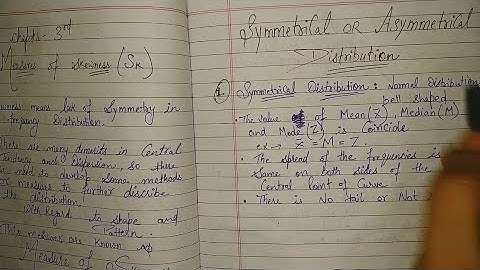 Chapts- 3rd
Measures of Skewness (SK)
means lack of Symmetry in
Distribution.
are many demerits in Central
and Dispersion, So there
need to develop Some methods
measures to further discribe
the distribution.
With regard to shape and
Pattern.
This mediums are known as
Measure of
Symmetrical OR Asymmetrical
Distribution
1. Symmetrical Distribution: Normal Distribution
bell shaped
• The value of Mean (X̄), Median (M)
and Mode (Z) is Coincide
ex → X̄ = M = Z.
• The spread of the frequencies is
Same on both sides of the
Central Point of Curve
• There is No tail or Not